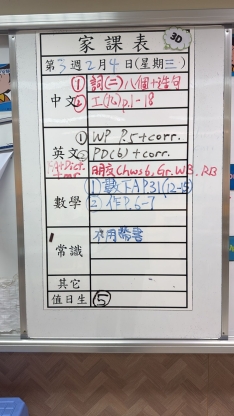 家課表 3D
第3週2月4日(星期三)
中文 ① 詞(二)八個+造句
② 工(16)p.1-18
英文 ① WP P.5+corr.
② PD(6)+corr.
Chws6, Gr. WB. RB
數學 ① 數下A P31(12-15)
② 作P.6-7
常識 不用帶書
其它
值日生 ⑤